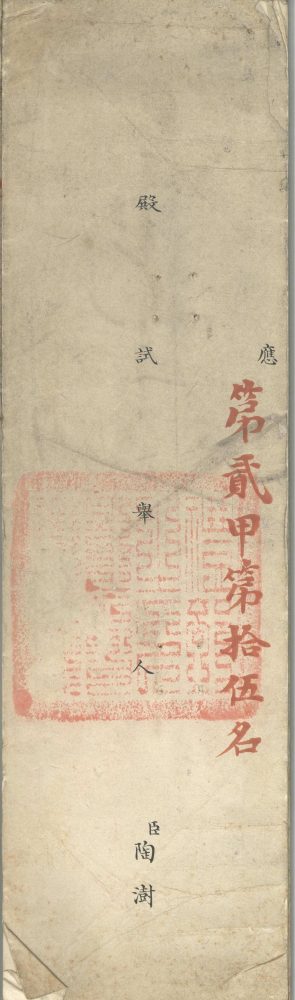 應
第貳甲第拾伍名
殿試舉人
臣陶澍